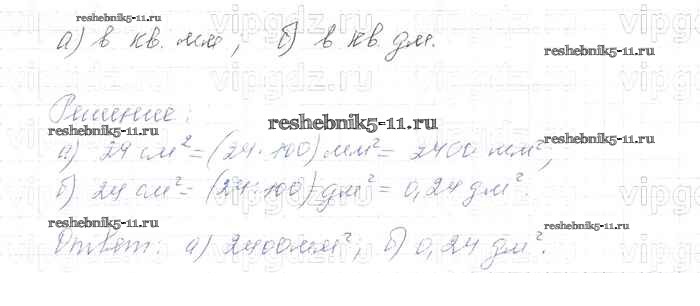 reshebnik5-11.ru
а) в кв. мм; б) в кв. дм.
reshebnik5-11.ru
Решение:
reshebnik5-11.ru
reshebnik5-11.ru
reshebnik5-11.ru
а) 24 см² = (24·100) мм² = 2400 мм²;
б) 24 см² = (24:100) дм² = 0,24 дм².
reshebnik5-11.ru
reshebnik5-11.ru
Ответ: а) 2400мм²; б) 0,24 дм².